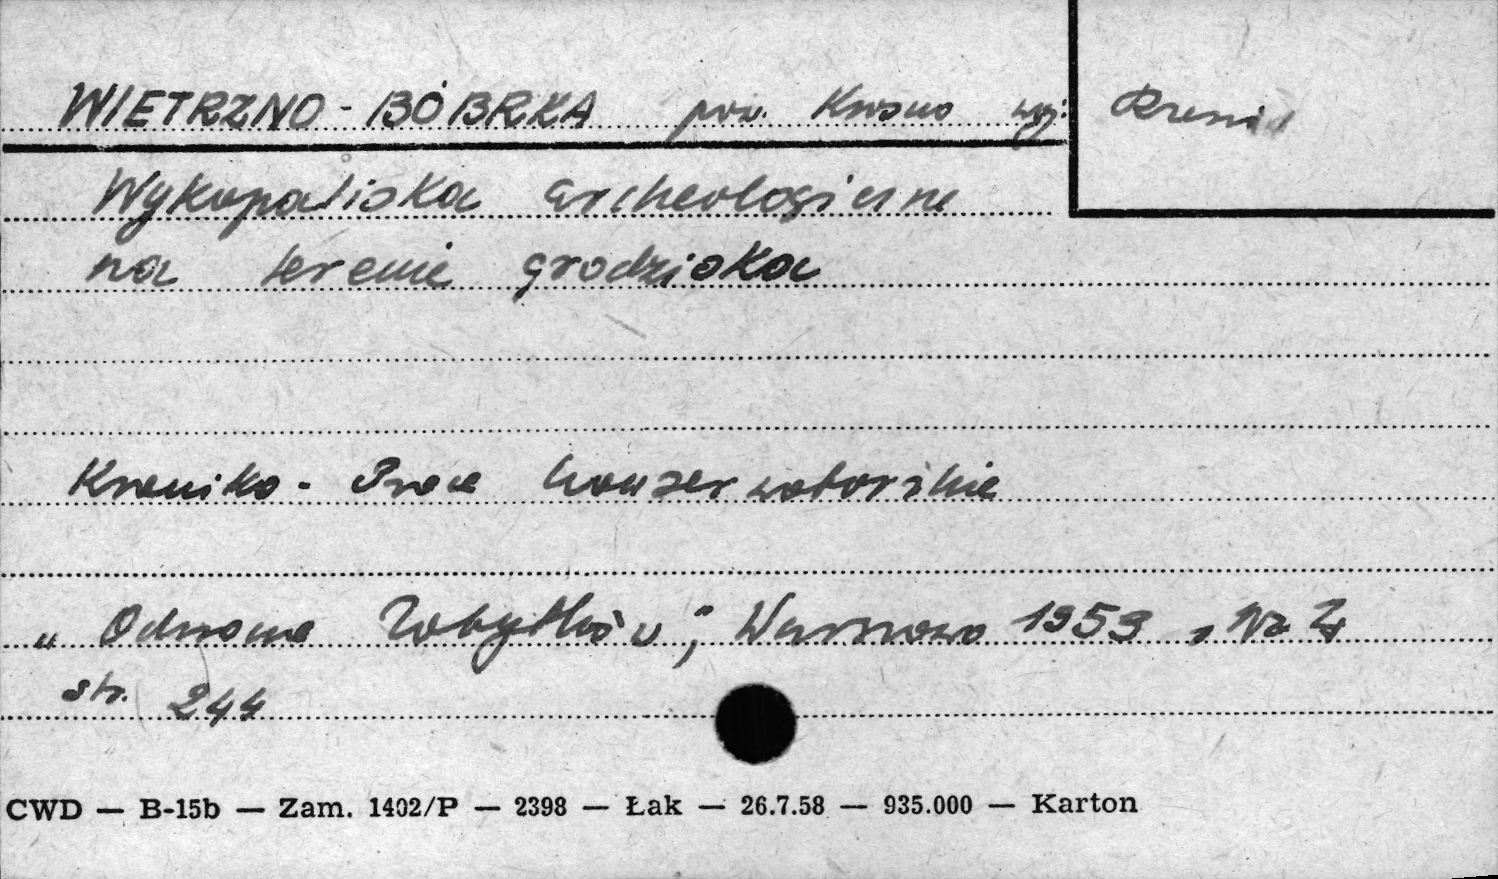 WIETRZNO - BÓBRKA pow. Krosno woj: Rzesz
Wykopaliska archeologiczne
na terenie grodziska
Kronika - Prace konserwatorskie
„Ochrona Zabytków”, Warszawa 1953, Nr 4
str. 244
CWD — B-15b — Zam. 1402/P — 2398 — Łak — 26.7.58 — 935.000 — Karton